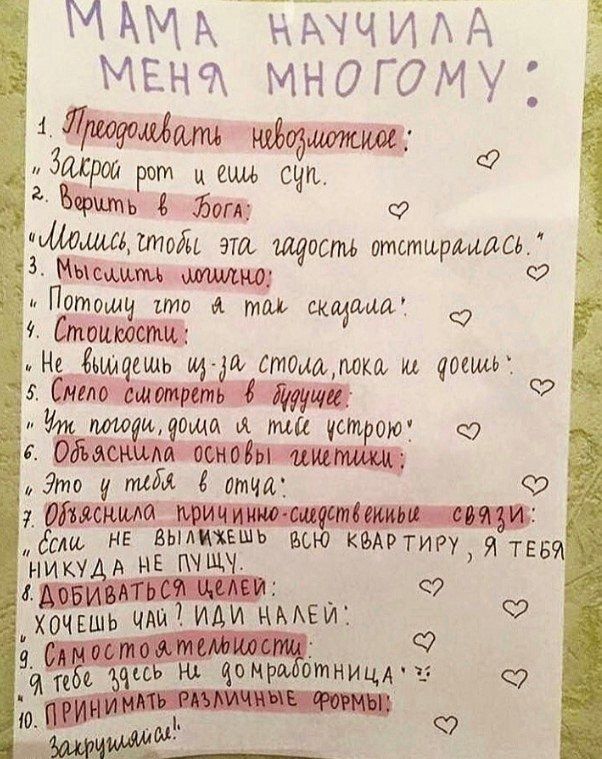 МАМА НАУЧИЛА
МЕНЯ МНОГОМУ:
1. Преодолевать невозможное:
„Закрой рот и ешь суп.
2. Верить в Бога:
"Молись, чтобы эта гадость отстиралась."
3. Мыслить логично:
„Потому что я так сказала".
4. Стойкости:
„Не выйдешь из-за стола, пока не доешь".
5. Смело смотреть в будущее:
„Уж погоди, дома я тебе устрою"
6. Объяснила основы генетики:
„Это у тебя в отца"
7. Объяснила причинно-следственные связи:
„Если не вылижешь всю квартиру, я тебя
никуда не пущу.
8. Добиваться целей:
„Хочешь чай? Иди налей"
9. Самостоятельности:
"Я тебе здесь не домработница"
10. Принимать различные формы:
Закругляйся!"